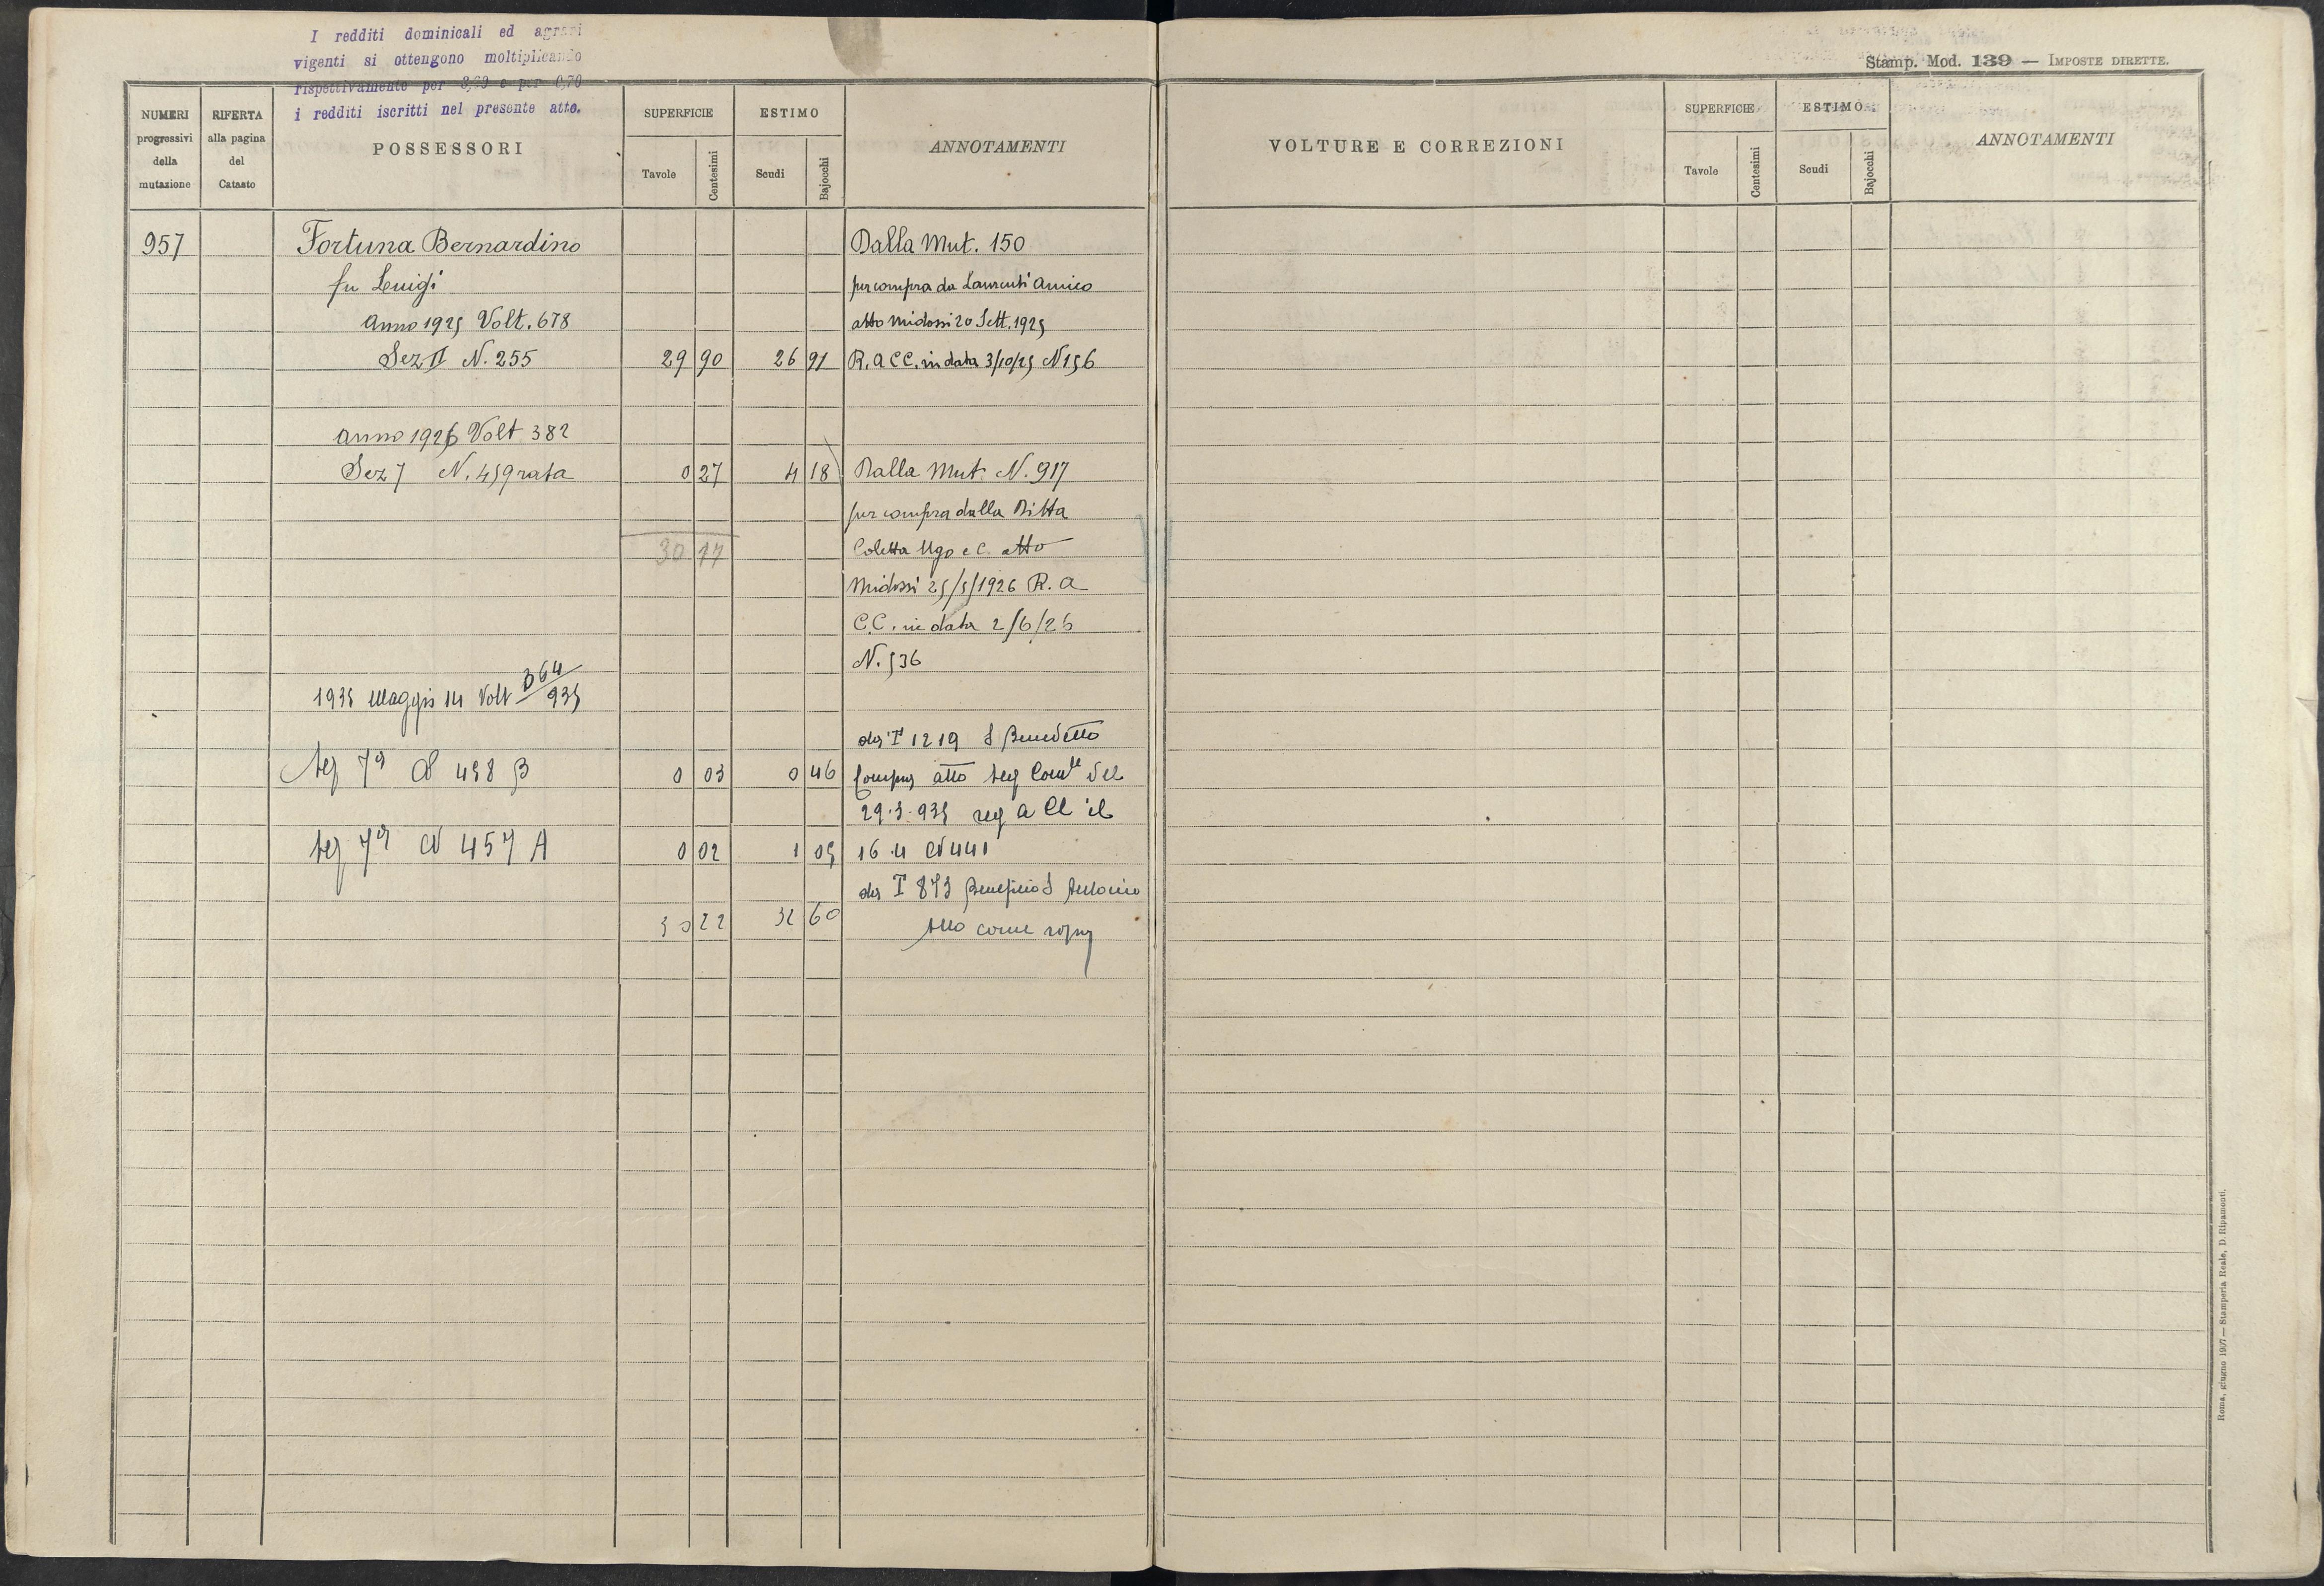 I redditi dominicali ed agrari
vigenti si ottengono moltiplicando
rispettivamente per 3,60 e per 0,70
i redditi iscritti nel presente atto.
Stamp. Mod. 139 — IMPOSTE DIRETTE.
NUMERI progressivi della mutazione
RIFERTA alla pagina del Catasto
POSSESSORI
SUPERFICIE
Tavole Centesimi
ESTIMO
Scudi Bajocchi
ANNOTAMENTI
VOLTURE E CORREZIONI
SUPERFICIE
Tavole Centesimi
ESTIMO
Scudi Bajocchi
ANNOTAMENTI
957 Fortuna Bernardino Dalla Mut. 150
fu Luigi per compra da Laurenti Amico
Anno 1925 Volt. 678 atto Midossi 20 Sett. 1925
Sez II N. 255 29 90 26 91 R. a CC. in data 3/10/25 N 156
Anno 1926 Volt 382
Sez 7 N. 459 rata 0 27 4 18 Dalla Mut N. 917
per compra dalla Ditta
30 17 Coletta Ugo e C. atto
Midossi 25/5/1926 R. a
C.C. in data 2/6/26
N. 536
1935 Maggio 14 Volt 364/935
da T 1219 S Benedetto
Seg 7a N 458 B 0 03 0 46 atto Seg Com.le del
29.3.935 reg a Cl il
Seg 7a N 457 A 0 02 1 05 16.4 N 441
da T 873 Beneficio S Antonio
30 22 32 60 Atto come sopra
Roma, giugno 1907 — Stamperia Reale, D. Ripamonti.